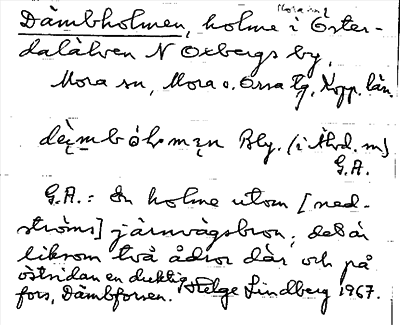 Mora sn
Dämbholmen, holme i Öster-
dalälven N Oxbergs by,
Mora sn, Mora o. Orsa tg, Kopp. län.
Bly. (i Älvd. m)
G.A.
G.A.: En holme utom [ned-
ströms] järnvägsbron; det är
liksom två ådror där och på
östsidan en duktig
fors, Dämbforsen. Helge Lindberg 1967.